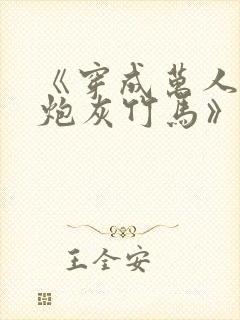 《穿成万人
炮灰竹马》
王全安